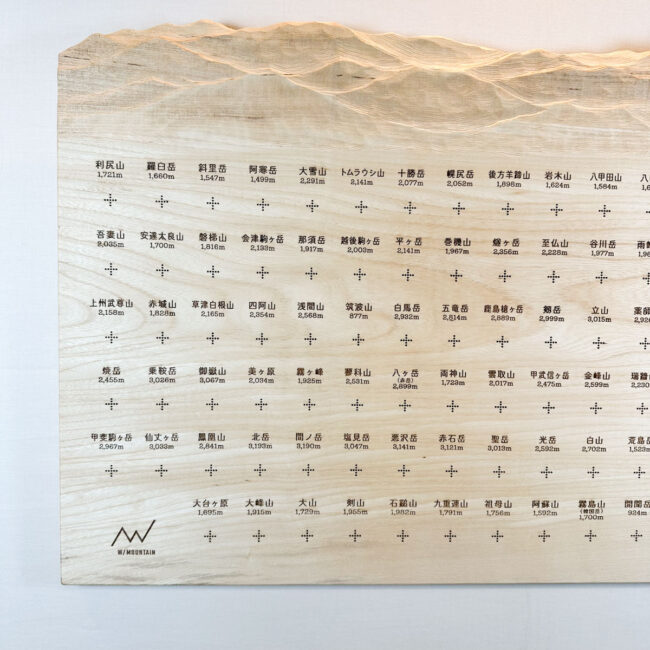 利尻山 羅臼岳 斜里岳 阿寒岳 大雪山 トムラウシ山 十勝岳 幌尻岳 後方羊蹄山 岩木山 八甲田山 八
1,721m 1,660m 1,547m 1,499m 2,291m 2,141m 2,077m 2,052m 1,898m 1,624m 1,584m
吾妻山 安達太良山 磐梯山 会津駒ヶ岳 那須岳 越後駒ヶ岳 平ヶ岳 巻機山 燧ヶ岳 至仏山 谷川岳 雨
2,035m 1,700m 1,816m 2,133m 1,917m 2,003m 2,141m 1,967m 2,356m 2,228m 1,977m
上州武尊山 赤城山 草津白根山 四阿山 浅間山 筑波山 白馬岳 五竜岳 鹿島槍ヶ岳 剱岳 立山 薬師
2,158m 1,828m 2,165m 2,354m 2,568m 877m 2,932m 2,814m 2,889m 2,999m 3,015m
焼岳 乗鞍岳 御嶽山 美ヶ原 霧ヶ峰 蓼科山 八ヶ岳 両神山 雲取山 甲武信ヶ岳 金峰山 瑞牆
(赤岳)
2,455m 3,026m 3,067m 2,034m 1,925m 2,531m 2,899m 1,723m 2,017m 2,475m 2,599m 2,230
甲斐駒ヶ岳 仙丈ヶ岳 鳳凰山 北岳 間ノ岳 塩見岳 悪沢岳 赤石岳 聖岳 光岳 白山 荒島岳
2,967m 3,033m 2,841m 3,193m 3,190m 3,047m 3,141m 3,121m 3,013m 2,592m 2,702m 1,523m
大台ヶ原 大峰山 大山 剣山 石鎚山 九重連山 祖母山 阿蘇山 霧島山 開聞岳
(韓国岳)
1,695m 1,915m 1,729m 1,955m 1,982m 1,791m 1,756m 1,592m 1,700m 924m
W/MOUNTAIN